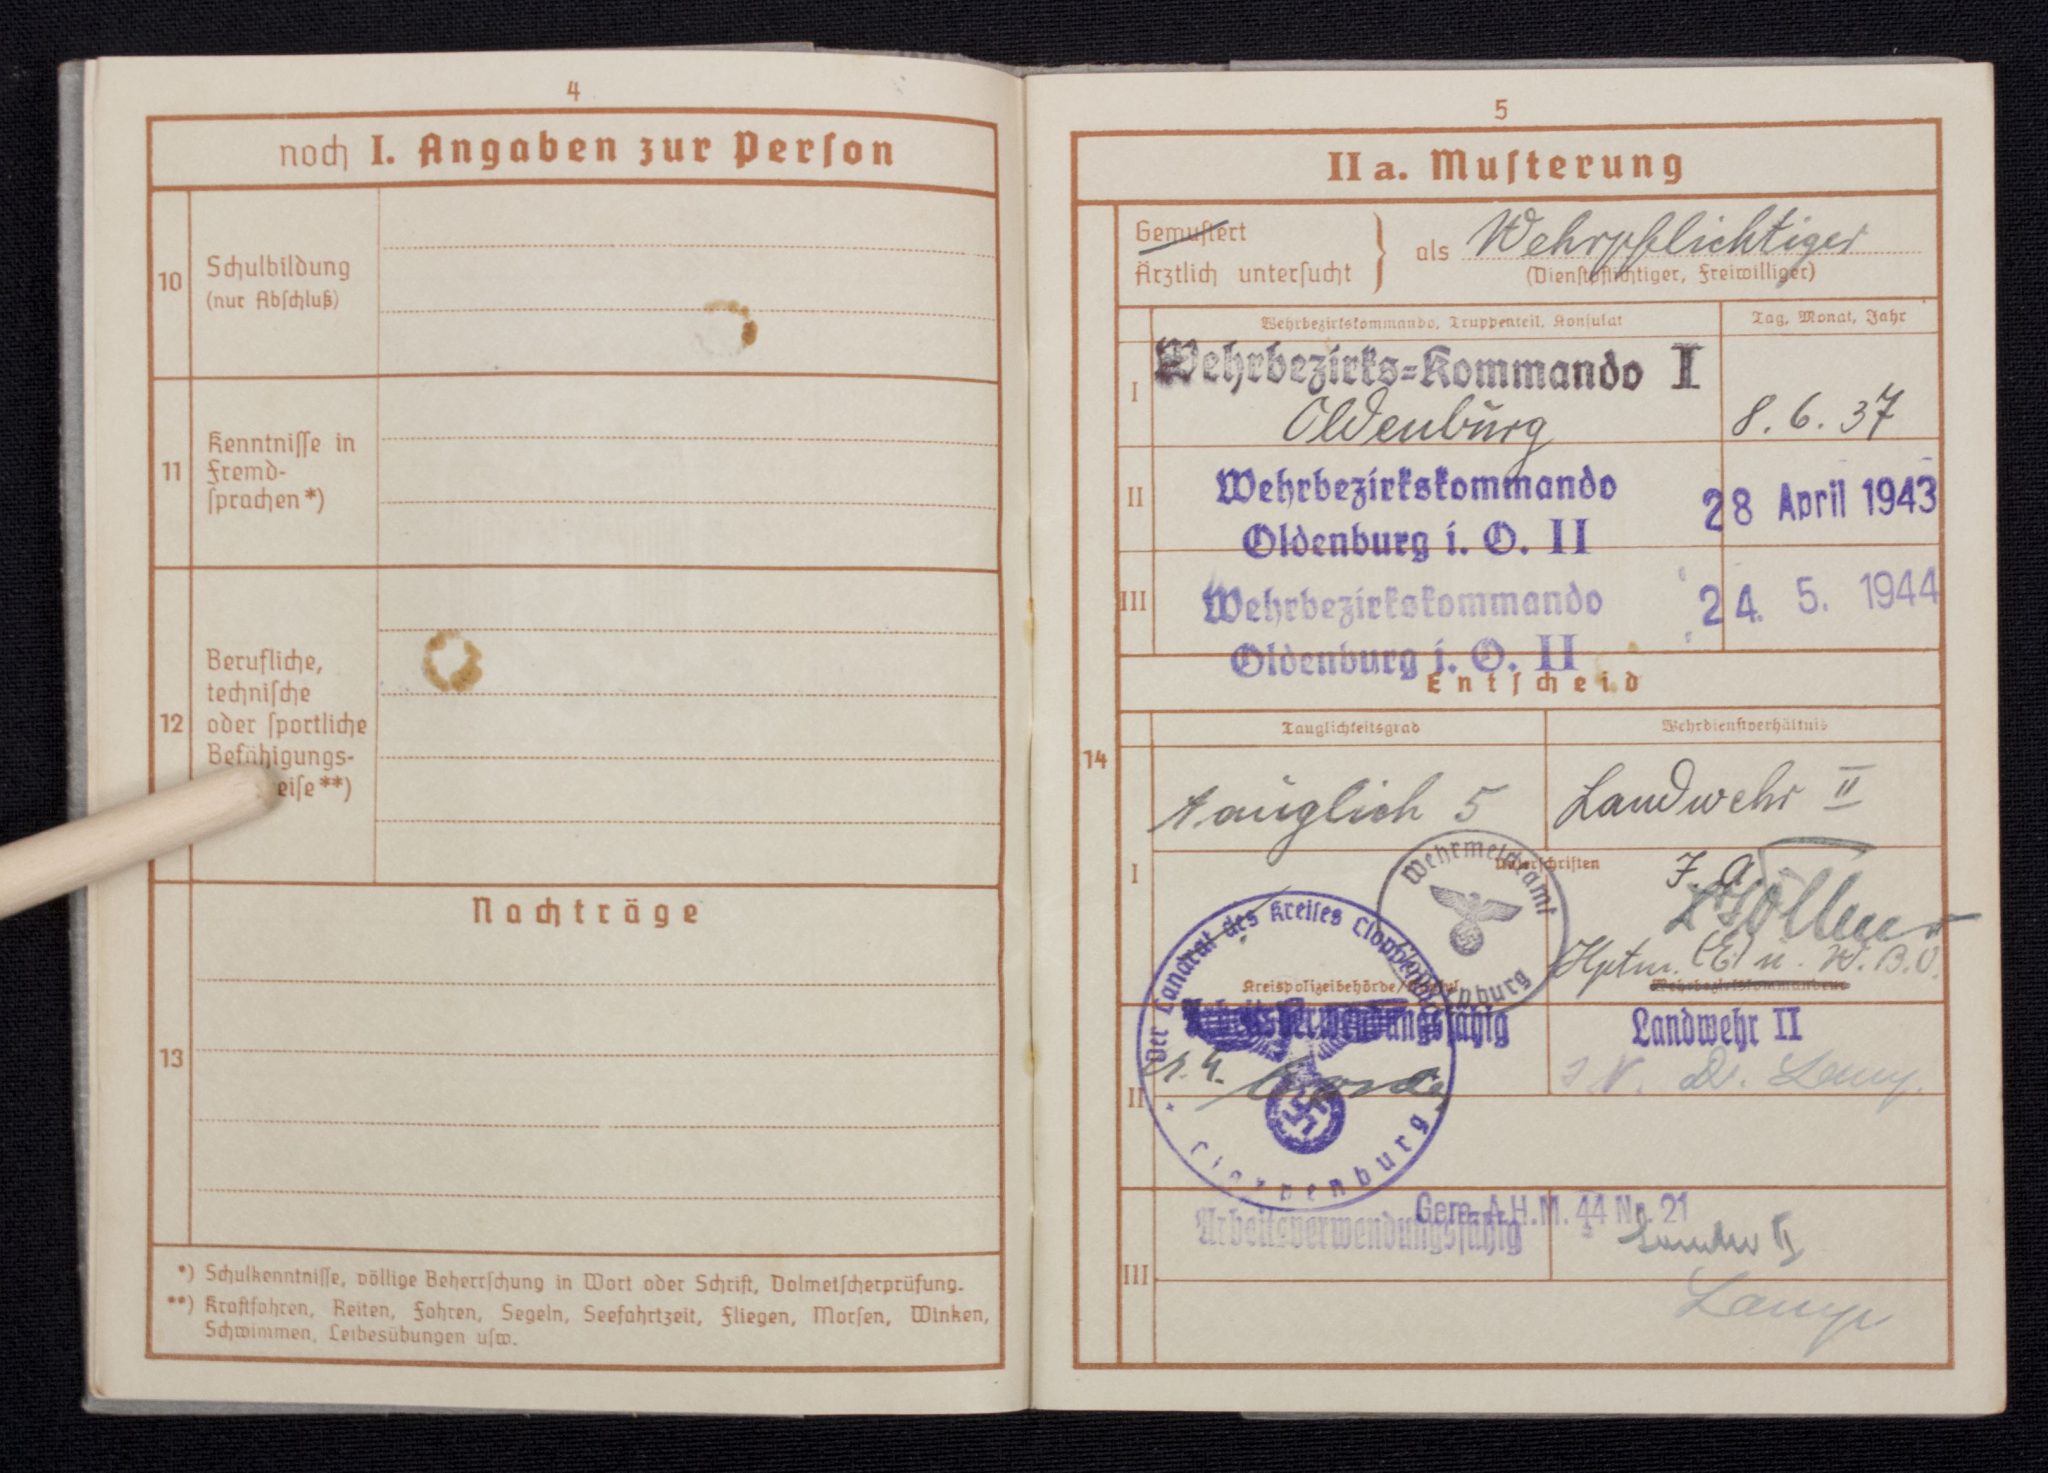 4
noch I. Angaben zur Person
10
Schulbildung
(nur Abschluß)
11
Kenntnisse in
Fremd-
sprachen*)
12
Berufliche,
technische
oder sportliche
Befähigungs-
eise**)
Nachträge
13
*) Schulkenntnisse, völlige Beherrschung in Wort oder Schrift, Dolmetscherprüfung.
**) Kraftfahren, Reiten, Fahren, Segeln, Seefahrtzeit, Fliegen, Morsen, Winken,
Schwimmen, Leibesübungen usw.
5
II a. Musterung
Gemustert
Ärztlich untersucht
als Wehrpflichtiger
(Dienstpflichtiger, Freiwilliger)
Wehrbezirkskommando, Truppenteil, Konsulat
Tag, Monat, Jahr
I
Wehrbezirks=Kommando I
Oldenburg
8. 6. 37
II
Wehrbezirkskommando
Oldenburg i. O. II
28 April 1943
III
Wehrbezirkskommando
Oldenburg i. O. II
24. 5. 1944
Entscheid
14
Tauglichkeitsgrad
Wehrdienstverhältnis
I
tauglich 5
Landwehr II
Unterschriften
J. A.
Wehrmeldeamt
Der Landrat des Kreises Cloppenburg
Cloppenburg
Hptm. (E) u. W.B.O.
Kreispolizeibehörde/Konsul
Wehrbezirkskommandeur
II
Arbeitsverwendungsfähig
Landwehr II
Dr. Lamp
III
Gem. A.H.M. 44 Nr. 21
Arbeitsverwendungsfähig
Landw II
Lamp